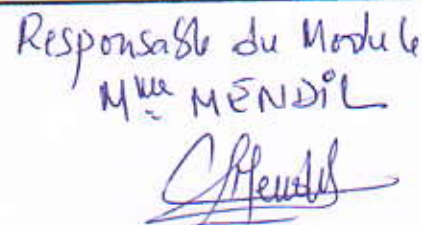 Responsable du Module
Mme MENDIL